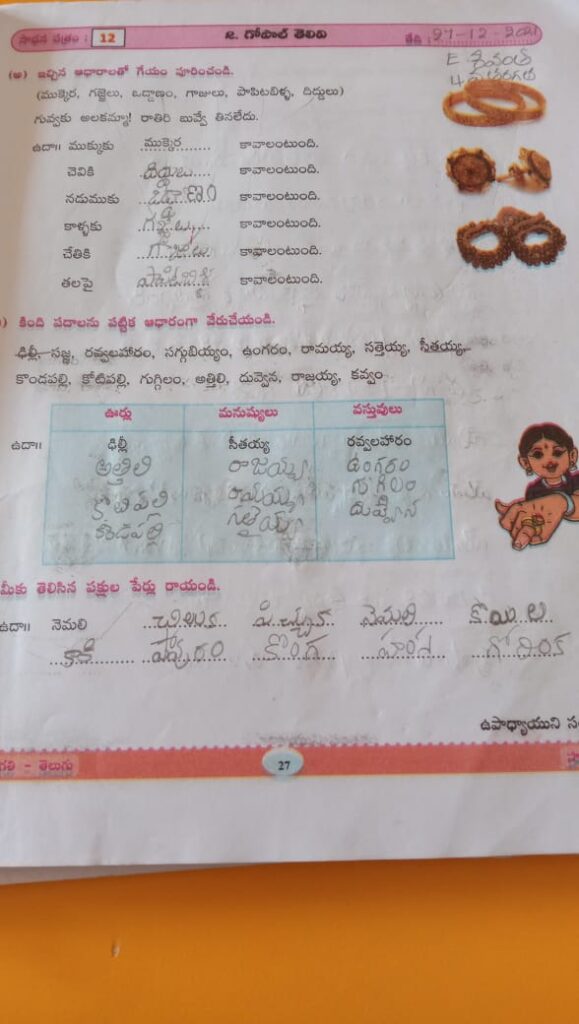 సాధన పత్రం : 12 ౭. గోపాల్ తెలివి తేది : 27-12-2021
(అ) ఇచ్చిన ఆధారాలతో గేయం పూరించండి.
(ముక్కెర, గజ్జెలు, ఒడ్డాణం, గాజులు, పాపిటబిళ్ళ, దిద్దులు)
గువ్వకు అలకమ్మా! రాతిరి బువ్వే తినలేదు.
ఉదా॥ ముక్కుకు ముక్కెర కావాలంటుంది.
చెవికి దిద్దులు కావాలంటుంది.
నడుముకు ఒడ్డాణం కావాలంటుంది.
కాళ్ళకు గజ్జెలు కావాలంటుంది.
చేతికి గాజులు కావాలంటుంది.
తలపై పాపిటబిళ్ళ కావాలంటుంది.
) కింది పదాలను పట్టిక ఆధారంగా వేరుచేయండి.
ఢిల్లీ, సజ్జ, రవ్వలహారం, సగ్గుబియ్యం, ఉంగరం, రామయ్య, సత్తెయ్య, సీతయ్య,
కొండపల్లి, కోటిపల్లి, గుగ్గిలం, అత్తిలి, దువ్వెన, రాజయ్య, కవ్వం
ఊర్లు మనుష్యులు వస్తువులు
ఉదా॥ ఢిల్లీ సీతయ్య రవ్వలహారం
అత్తిలి రాజయ్య ఉంగరం
కోటిపలి రామయ్య గుగిలం
కొండపల్లి సతెయ్య దువ్వెన
మీకు తెలిసిన పక్షుల పేర్లు రాయండి.
ఉదా॥ నెమలి చిలుక పిచ్చుక నెమలి కోయిల
కాకి పావురం కొంగ హంస గోరింక
ఉపాధ్యాయుని సం
గతి - తెలుగు 27